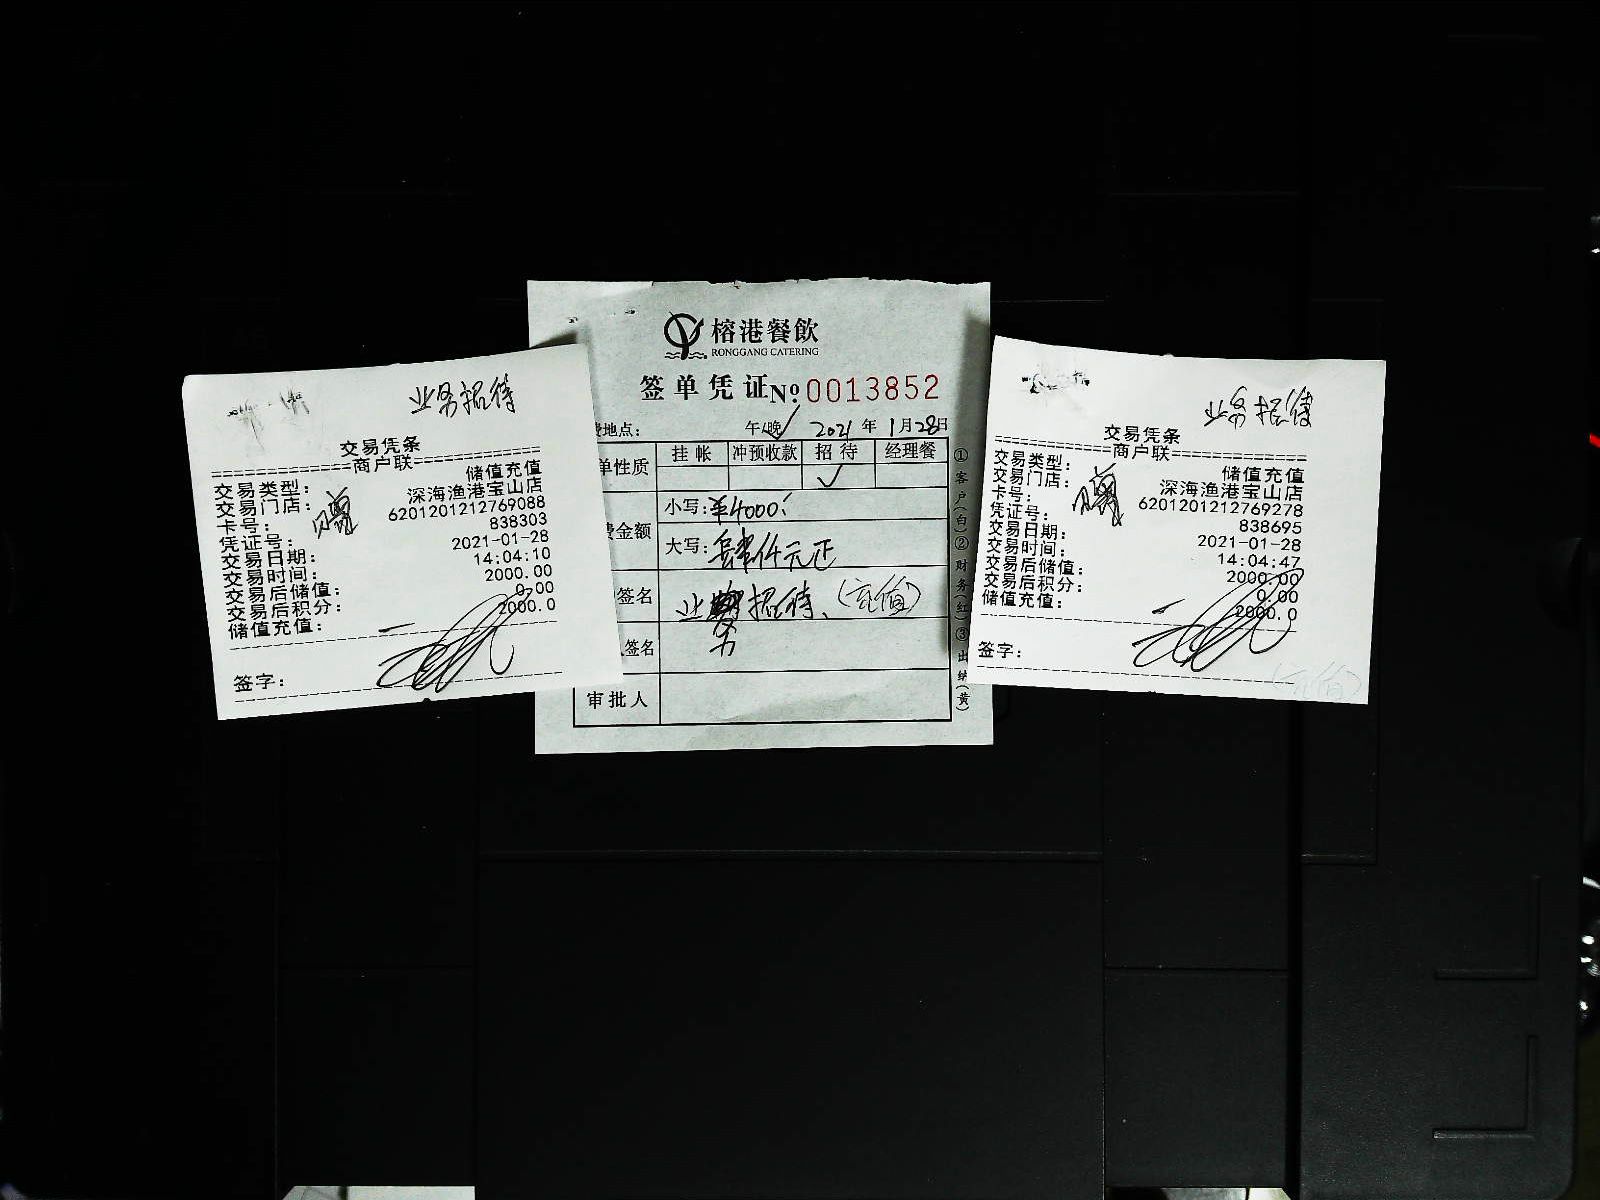 业务招待
交易凭条
商户联
交易类型： 储值充值
交易门店： 深海渔港宝山店
卡号： 6201201212769088
凭证号： 838303
交易日期： 2021-01-28
交易时间： 14:04:10
交易后储值： 2000.00
交易后积分： 0.00
储值充值： 2000.0
签字：
榕港餐飲
RONGGANG CATERING
签单凭证 No 0013852
费地点： 午/晚 2021年1月28日
单性质 挂帐 冲预收款 招待 经理餐
✓
费金额 小写：¥4000
大写：肆仟元正
签名 业务招待、（充值）
签名
审批人
①客户（白）②财务（红）③出纳（黄）
业务招待
交易凭条
商户联
交易类型： 储值充值
交易门店： 深海渔港宝山店
卡号： 6201201212769278
凭证号： 838695
交易日期： 2021-01-28
交易时间： 14:04:47
交易后储值： 2000.00
交易后积分： 0.00
储值充值： 2000.0
签字：
（充值）